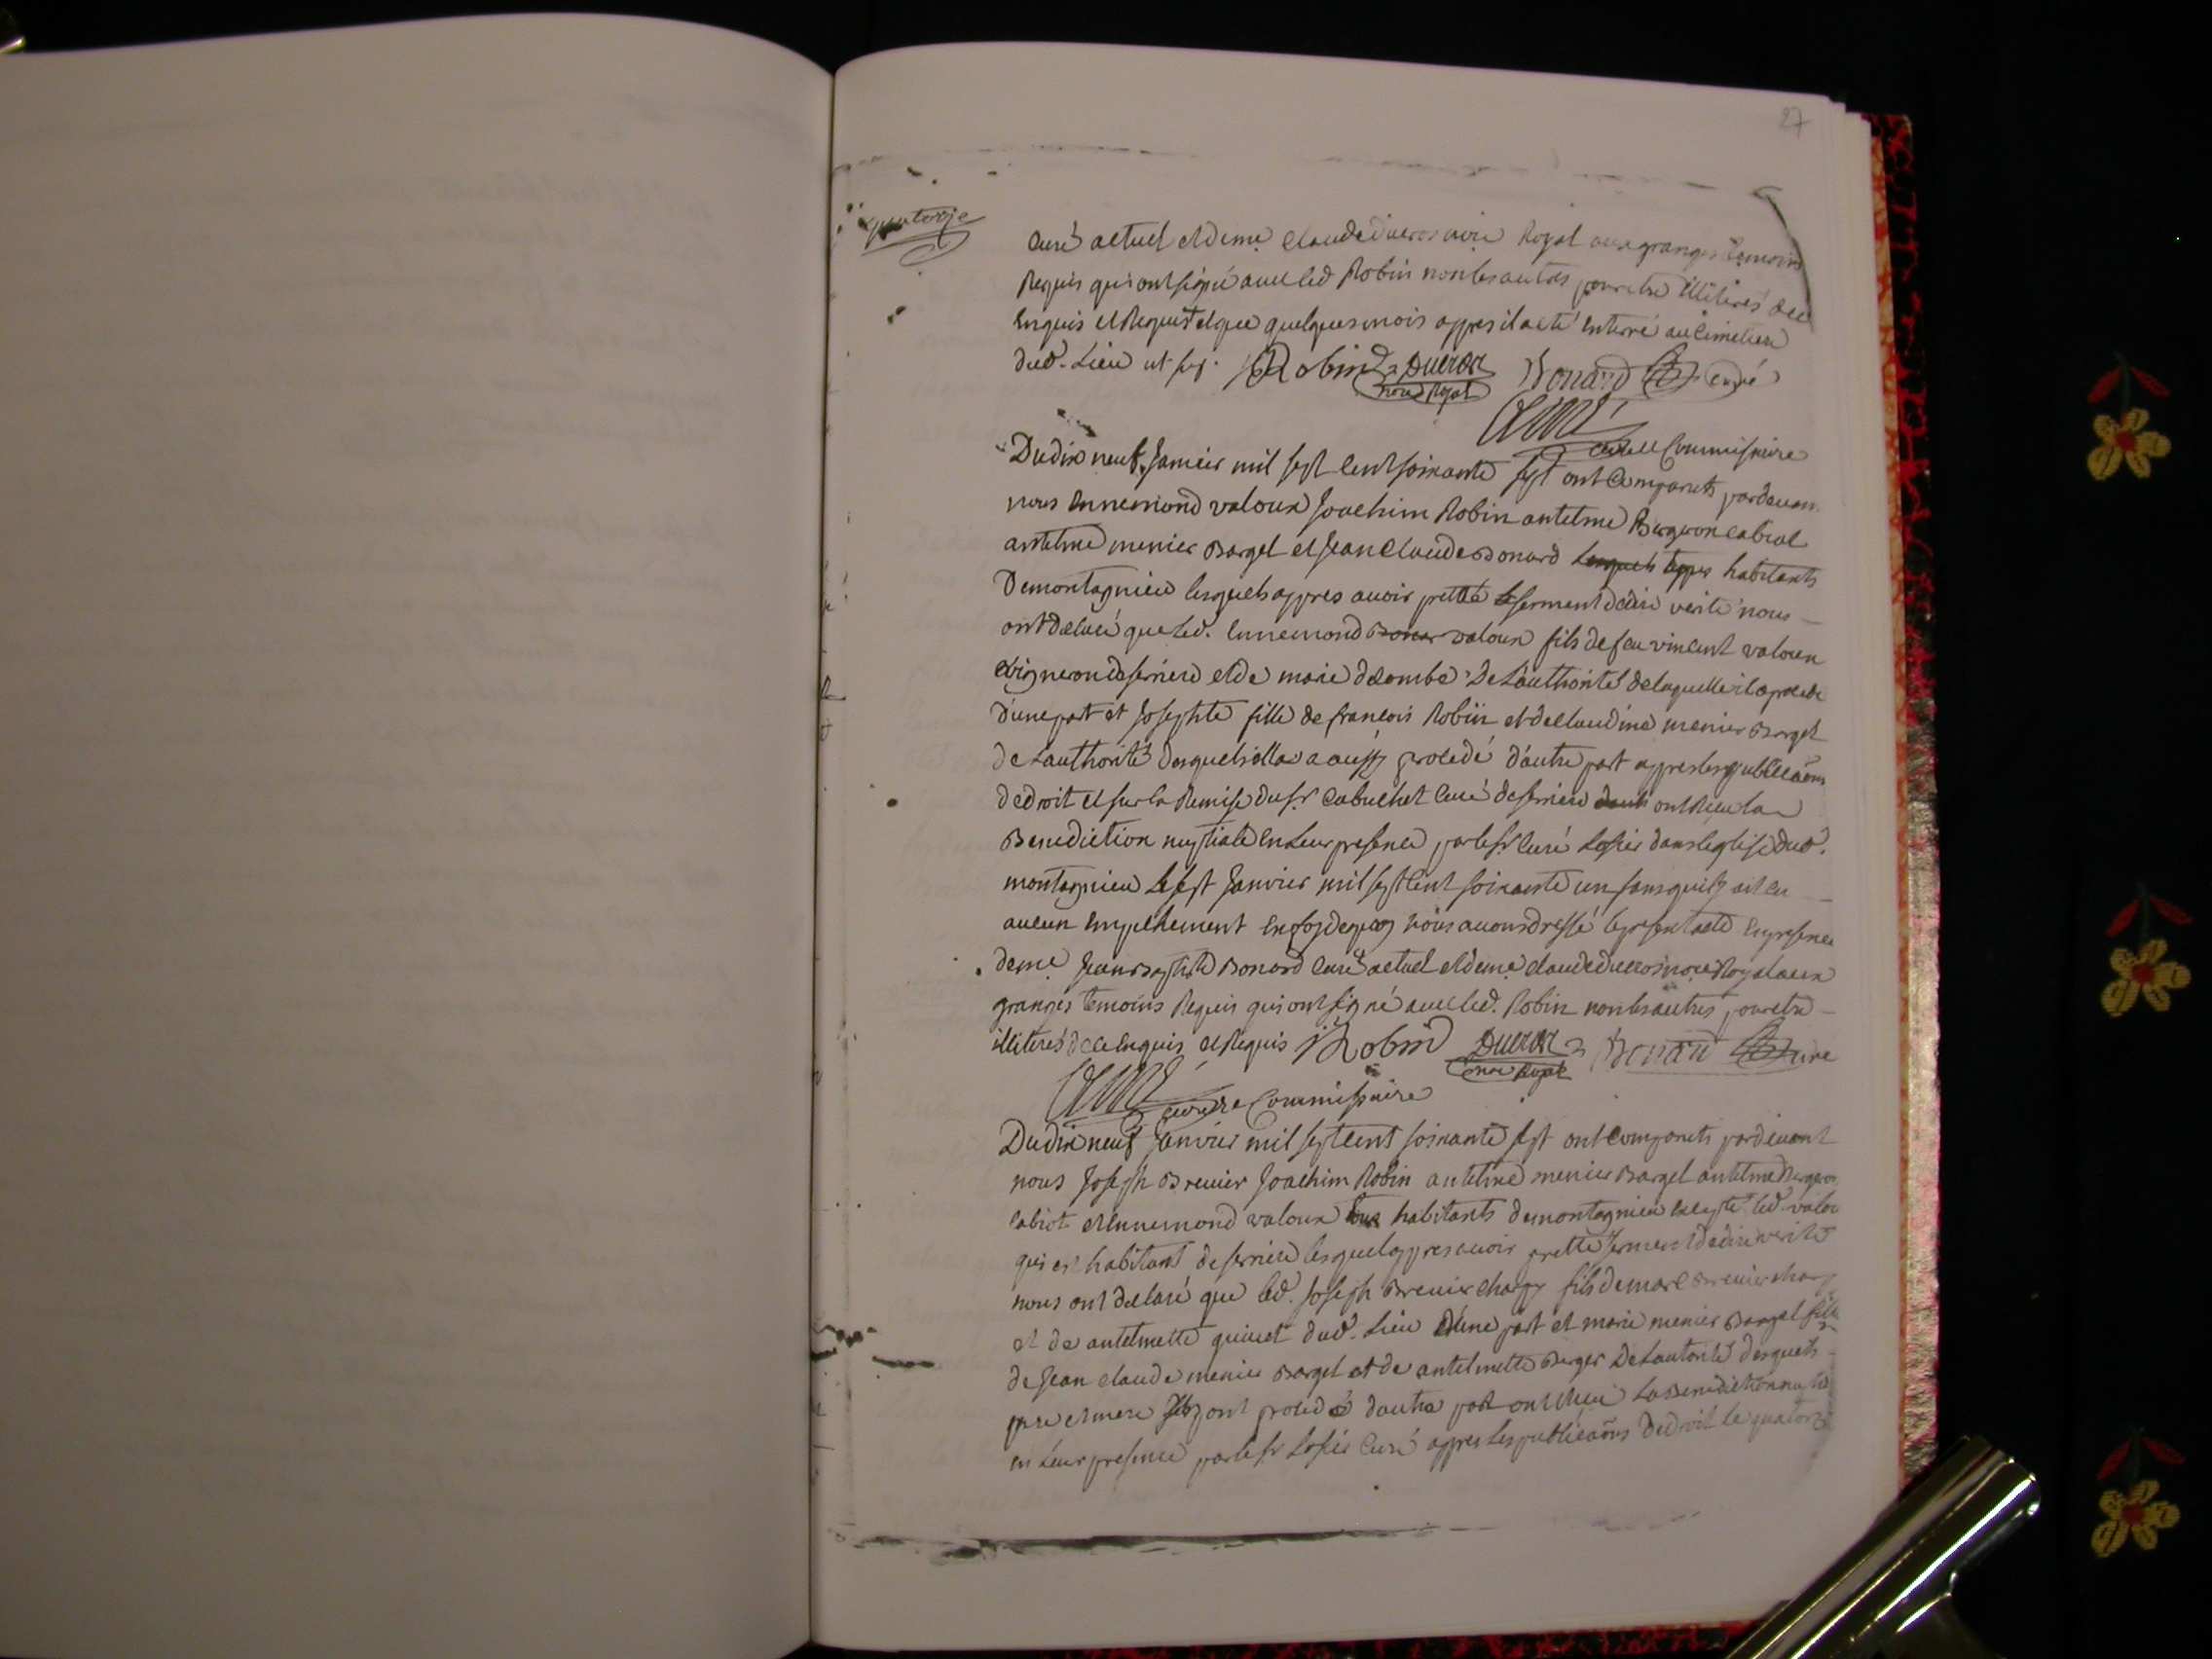 27
quatorze
Curé actuel et de me Claude Ducros noire Royal aux granges temoins
Requis qui ont signé avec led Robin non les autres pour etre illiteres de ce
Enquis et Requis et que quelques mois appres il a eté enterré au Cimetiere
dud. Lieu ut sup. JRobin Ducros Bonard curé
noire Royal
Commissaire
Du dix neuf Janvier mil sept cent soixante sept ont Comparuts pardevan
nous Ennemond valoux Joachim Robin antelme Bergeron cabiot
antelme menier Bargel et Jean Claude Bonard Lesquels appres habitants
De montagnieu lesquels appres avoir pretté le serment de dire verité nous
ont déclaré que led. Ennemond valoux fils de feu vincent valoux
vigneron de serriere et de marie decombe de L'authorité de laquelle il a procedé
d'une part et Josephte fille de françois Robin et de Claudine menier Bargel
de Lauthorité desquels ella a aussy procedé d'autre part appres les publicaõns
de droit et sur la Remise du sr Cabuchet Curé de serriere ont Reçu la
Benediction nuptiale en Leur presence par le sr Curé dans l'eglise dud.
montagnieu Le sept Janvier mil sept cent soixante un sans quil y ait eu
aucun Empechement En foy de quoy nous avons dressé le present acte En presence
de me Jean Baptiste Bonard Curé actuel et de me Claude Ducros noire Royal aux
granges temoins Requis qui ont signé avec led. Robin non les autres pour etre
illiterés de ce Enquis et Requis JRobin Ducros Bonard Curé
noire Royal
Commissaire
Du dix neuf Janvier mil sept cent soixante sept ont Comparuts pardevant
nous Joseph Brevier Joachim Robin antelme menier Bargel antelme Bergeron
Cabiot et Ennemond valoux tous habitants de montagnieu excepté led. valou
qui est habitant de serriere lesquels appres avoir pretté serment de dire verité
nous ont déclaré que led. Joseph Brevier chapy fils de marc Brevier chapy
et de antelmette quinet dud. Lieu d'une part et marie menier Bargel fille
de Jean Claude menier Bargel et de antelmette Berger De Lautorité desquels
pere et mere ils ont procedé dautre part ont Reçu La Benediction nuptial
en Leur presence par le sr Curé appres les publicaõns De droit le quatorze